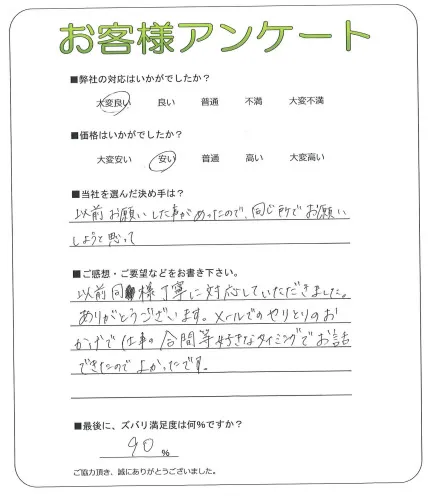 お客様アンケート
■弊社の対応はいかがでしたか？
大変良い 良い 普通 不満 大変不満
■価格はいかがでしたか？
大変安い 安い 普通 高い 大変高い
■当社を選んだ決め手は？
以前お願いした事があったので、同じ所でお願い
しようと思って
■ご感想・ご要望などをお書き下さい。
以前同様丁寧に対応していただきました。
ありがとうございます。メールでのやりとりのお
かげで仕事の合間等好きなタイミングでお話
できたのでよかったです。
■最後に、ズバリ満足度は何％ですか？
90 ％
ご協力頂き、誠にありがとうございました。